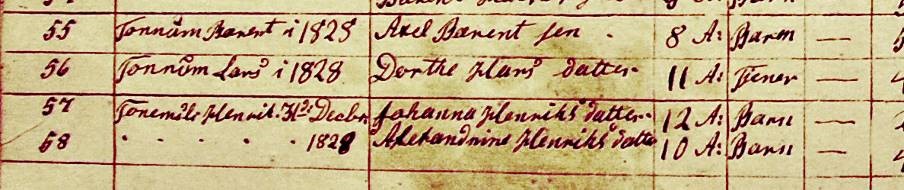 55 Tonnüm Barent i 1828 Axel Barent sen . 8 A: Barn —
56 Tonnüm Lars i 1828 Dorthe Hans datter 11 A: Tiener —
57 Henrik 31te Decbr Johanna Henriks datter 12 A: Barn —
58 . . . . . 1828 Alexandrine Henriks datte 10 A: Barn —